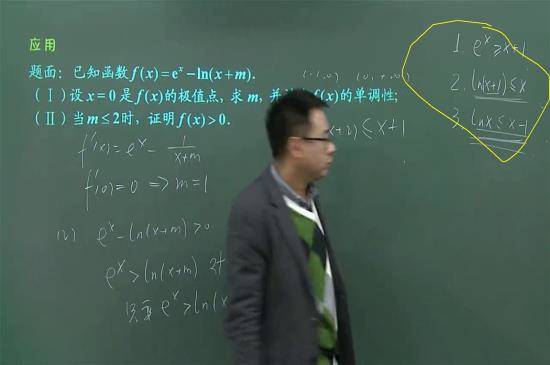 应用
题面: 已知函数f(x)=eˣ-ln(x+m).
(Ⅰ)设x=0是f(x)的极值点, 求m, 并 f(x)的单调性;
(Ⅱ)当m≤2时, 证明f(x)>0.
f'(x)=eˣ- 1/(x+m)
f'(0)=0 => m=1
(2) eˣ-ln(x+m)>0
eˣ>ln(x+m)
只要 eˣ>ln(x
(0, +∞)
x+2)≤x+1
1. eˣ≥x+1
2. ln(x+1)≤x
3. lnx≤x-1